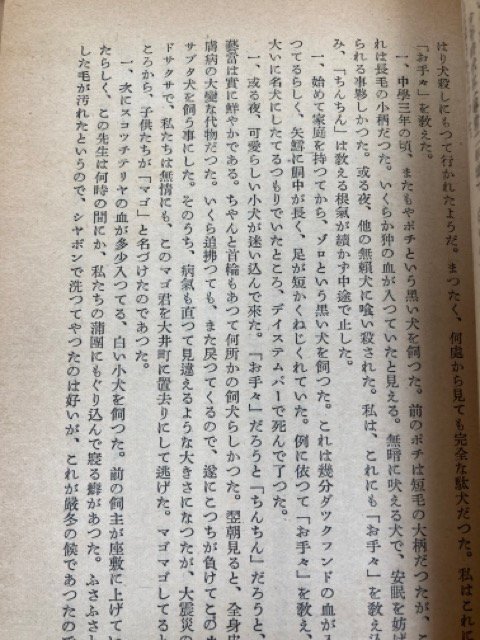 はり犬殺しにもつて行かれたようだ。まつたく、何處から見ても完全な駄犬だつた。私はこれに
「お手々」を教えた。
一、中學三年の頃、またもやポチという黒い犬を飼つた。前のポチは短毛の大柄だつたが、
れは長毛の小柄だつた。いくらか狆の血が入つていたと見える。無暗に吠える犬で、安眠を妨
られる事夥しかつた。或る夜、他の無頼犬に喰い殺された。私は、これにも「お手々」を教え
み、「ちんちん」は教える根氣が續かず中途で止した。
一、始めて家庭を持つてから、ゾロという黒い犬を飼つた。これは幾分ダツクフンドの血が
つてるらしく、矢鱈に胴中が長く、足が短かくねじくれていた。例に依つて「お手々」を教え、
大いに名犬にしたてるつもりでいたところ、デイステムパーで死んで了つた。
一、或る夜、可愛らしい小犬が迷い込んで來た。「お手々」だろうと「ちんちん」だろうと、
藝當は實に鮮やかである。ちゃんと首輪もあつて何所かの飼犬らしかつた。翌朝見ると、全身皮
膚病の大變な代物だつた。いくら追拂つても、また戻つてくるので、遂にこつちが負けてこの
サブタ犬を飼う事にした。そのうち、病氣も直つて見違えるような大きさになつたが、大震災の
ドサクサで、私たちは無情にも、このマゴ君を大井町に置去りにして逃げた。マゴマゴしてると
ころから、子供たちが「マゴ」と名づけたのであつた。
一、次にスコツチテリヤの血が多少入つてる、白い小犬を飼つた。前の飼主が座敷に上げてい
たらしく、この先生は何時の間にか、私たちの蒲團にもぐり込んで寢る癖があつた。ふさふさし
した毛が汚れたというので、シヤボンで洗つてやつたのは好いが、これが嚴冬の候であつた